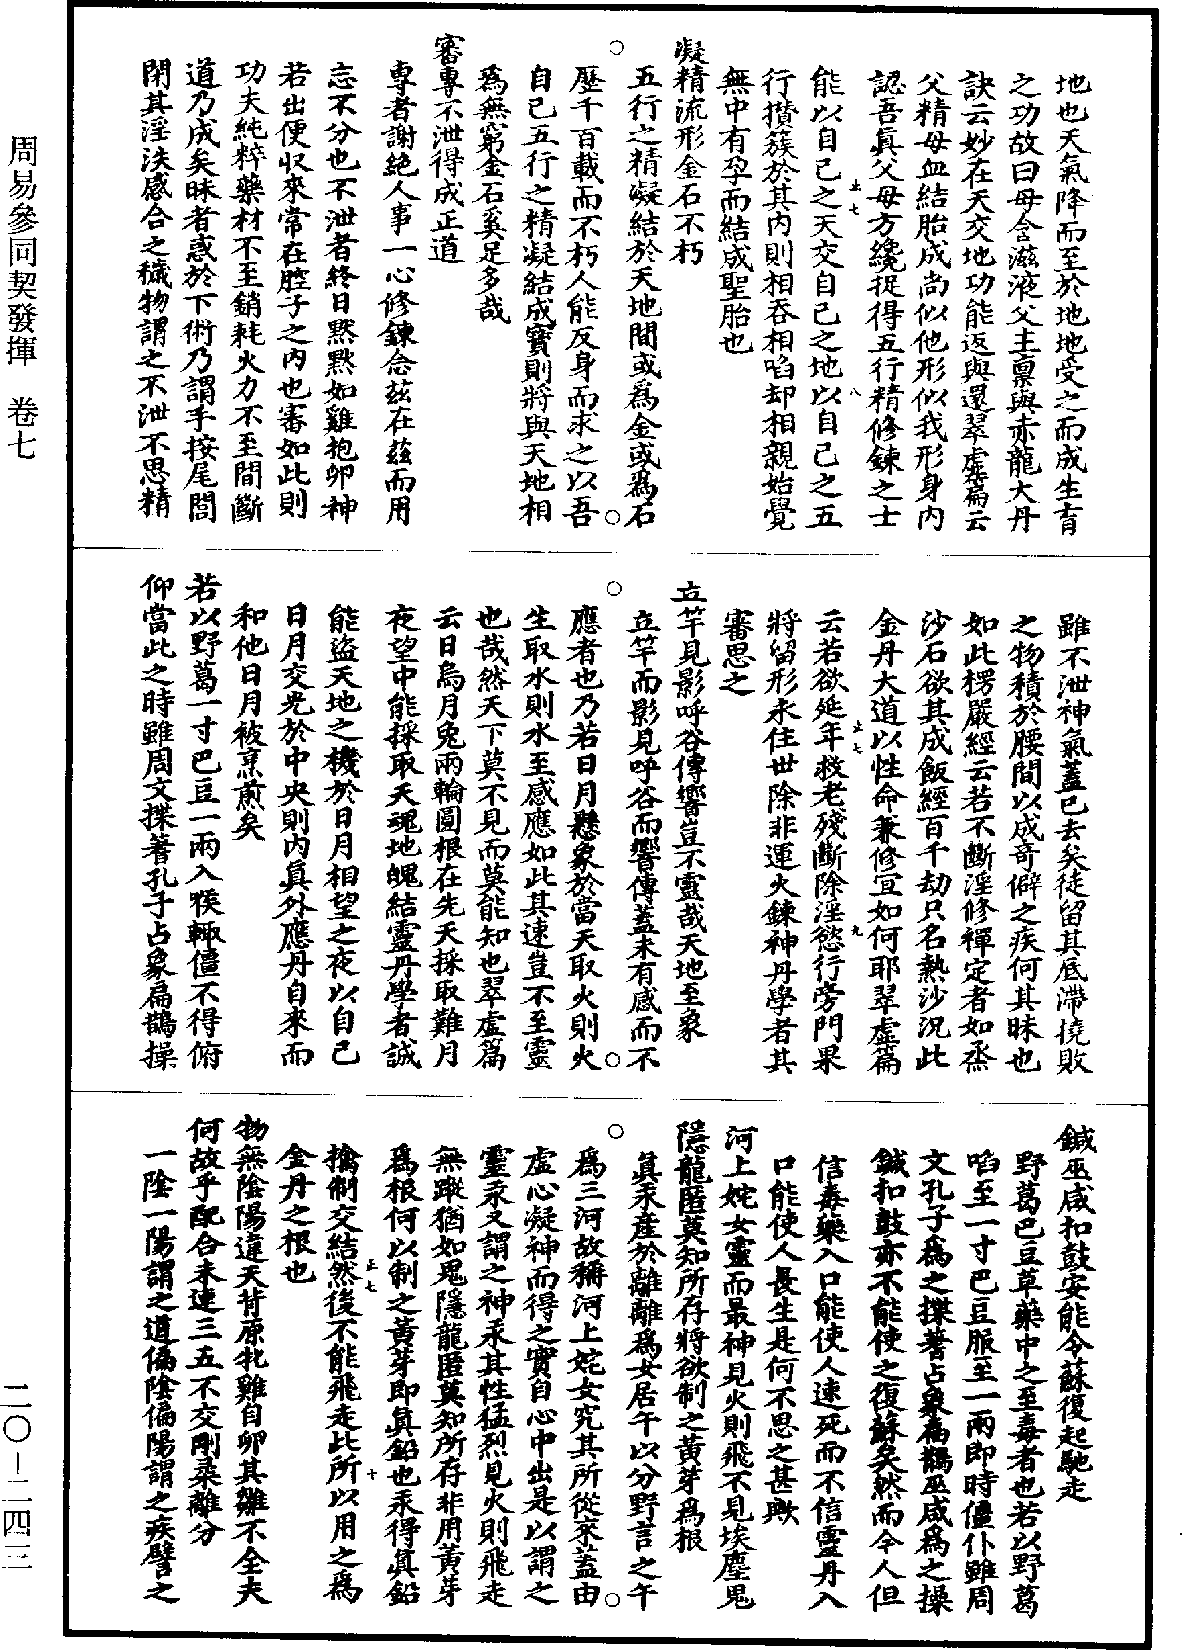 周易參同契發揮　卷七
地也天氣降而至於地地受之而成生育
之功故曰母含滋液父主稟與赤龍大丹
訣云妙在天交地功能返與還翠虛篇云
父精母血結胎成尚似他形似我形身內
認吾眞父母方纔捉得五行精修鍊之士
能以自己之天交自己之地以自己之五
行攢簇於其內則相吞相啗却相親始覺
無中有孕而結成聖胎也
凝精流形金石不朽
五行之精凝結於天地間或爲金或爲石
歷千百載而不朽人能反身而求之以吾
自己五行之精凝結成寶則將與天地相
爲無窮金石奚足多哉
審專不泄得成正道
專者謝絶人事一心修鍊念茲在茲而用
志不分也不泄者終日黙黙如雞抱卵神
若出便収來常在腔子之內也審如此則
功夫純粹藥材不至銷耗火力不至間斷
道乃成矣昧者惑於下術乃謂手按尾閭
閉其淫泆感合之穢物謂之不泄不思精
雖不泄神氣蓋已去矣徒留其底滯撓敗
之物積於腰間以成奇僻之疾何其昧也
如此楞嚴經云若不斷淫修禪定者如烝
沙石欲其成飯經百千劫只名熱沙況此
金丹大道以性命兼修宜如何耶翠虛篇
云若欲延年救老殘斷除淫慾行旁門果
將留形永住世除非運火鍊神丹學者其
審思之
立竿見影呼谷傳響豈不靈哉天地至象
立竿而影見呼谷而響傳蓋未有感而不
應者也乃若日月懸象於當天取火則火
生取水則水至感應如此其速豈不至靈
也哉然天下莫不見而莫能知也翠虛篇
云日烏月兔兩輪圓根在先天採取難月
夜望中能採取天魂地魄結靈丹學者誠
能盜天地之機於日月相望之夜以自己
日月交光於中央則內眞外應丹自來而
和他日月被烹煎矣
若以野葛一寸巴豆一兩入喉輒僵不得俯
仰當此之時雖周文揲蓍孔子占象扁鵲操
鍼巫咸扣鼓安能令蘇復起馳走
野葛巴豆草藥中之至毒者也若以野葛
啗至一寸巴豆服至一兩即時僵仆雖周
文孔子爲之揲蓍占象扁鵲巫咸爲之操
鍼扣鼓亦不能使之復蘇矣然而今人但
信毒藥入口能使人速死而不信靈丹入
口能使人長生是何不思之甚歟
河上姹女靈而最神見火則飛不見埃塵鬼
隱龍匿莫知所存將欲制之黃芽爲根
眞汞產於離離爲女居午以分野言之午
爲三河故稱河上姹女究其所從來蓋由
虛心凝神而得之實自心中出是以謂之
靈汞又謂之神汞其性猛烈見火則飛走
無蹤猶如鬼隱龍匿莫知所存非用黃芽
爲根何以制之黃芽即眞鉛也汞得眞鉛
擒制交結然後不能飛走此所以用之爲
金丹之根也
物無陰陽違天背原牝雞自卵其雛不全夫
何故乎配合未連三五不交剛柔離分
一陰一陽謂之道偏陰偏陽謂之疾譬之
二〇—二四三